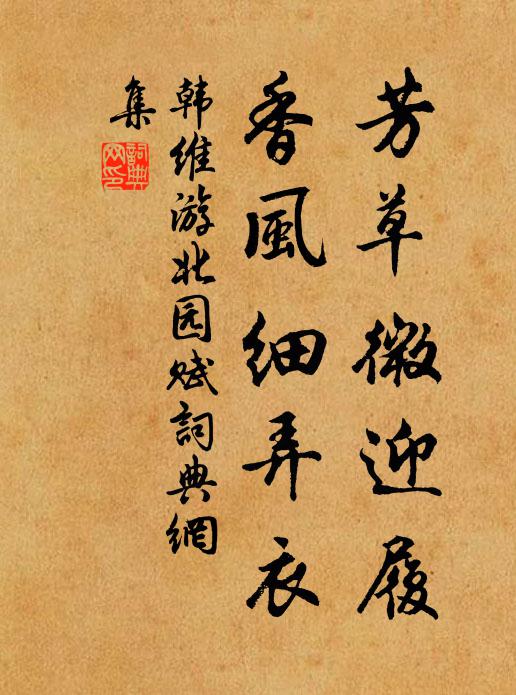 芳草微迎履
香風细弄衣
韩维游北园赋詞典網
集
詞典
网印